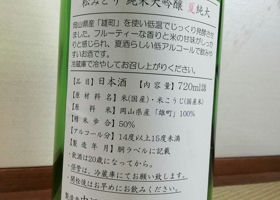 松みどり 純米大吟醸 夏純大
岡山県産「雄町」を使い低温でじっくり発酵させ
た。フルーティーな香りと米の甘味がしっか
りと感じられ、夏酒らしい低アルコールで飲みや
すいお酒です。
冷蔵庫で冷やしてお召し上がりください。
【品目】日本酒 【内容量】720ml詰
【原材料】米(国産)・米こうじ(国産米)
【原料米】岡山県産「雄町」100%
【精米歩合】50%
【アルコール分】14度以上15度未満
【製造年月】胴ラベルに記載
・飲酒は20歳になってから。
・保管は、冷蔵庫にてお願い致します。
・開栓後はお早めにお飲みください。